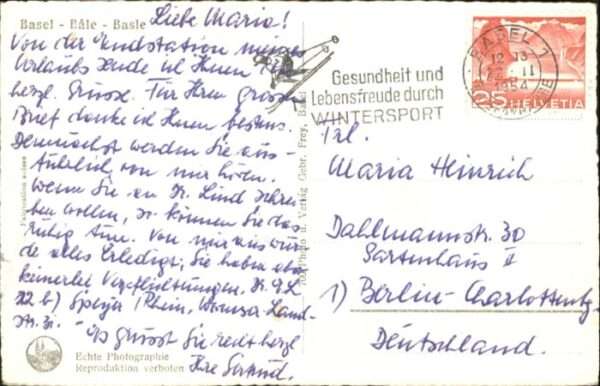 Basel - Bâle - Basle
Liebe Maria!
Von der Endstation meines
Urlaubs sende ich Ihnen
herzl. Grüsse. Für Ihren grossen
Brief danke ich Ihnen bestens.
Demnächst werden Sie aus-
führlich von mir hören.
Wenn Sie an Dr. Lind schrei
ben wollen, so können Sie das
ruhig tun. Von mir aus wur
de alles erledigt; Sie haben aber
keinerlei Verpflichtungen. Dr. G. L.
22 b) Speyer / Rhein, Wormser Land-
str.
Es grüsst Sie recht herzl.
Ihre Gertrud.
Echte Photographie
Reproduktion verboten
Photo u. Verlag Gebr. Frey, Basel
Gesundheit und
Lebensfreude durch
WINTERSPORT
BASEL 1
1954
25 HELVETIA
Frl.
Maria Heinrich
Dahlmannstr. 30
Gartenhaus II
1) Berlin-Charlottenbg.
Deutschland.